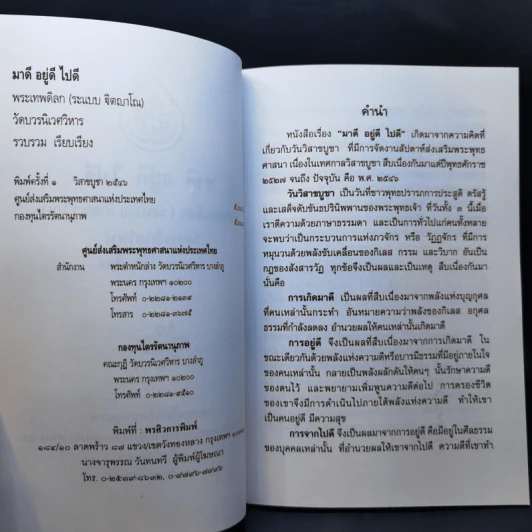 มาดี อยู่ดี ไปดี
พระเทพดิลก (ระแบบ ฐิตญาโณ)
วัดบวรนิเวศวิหาร
รวบรวม เรียบเรียง
พิมพ์ครั้งที่ ๑ วิสาขบูชา ๒๕๔๖
ศูนย์ส่งเสริมพระพุทธศาสนาแห่งประเทศไทย
กองทุนไตรรัตนานุภาพ
ศูนย์ส่งเสริมพระพุทธศาสนาแห่งประเทศไทย
สำนักงาน พระตำหนักล่าง วัดบวรนิเวศวิหาร บางลำภู
พระนคร กรุงเทพฯ ๑๐๒๐๐
โทรศัพท์ ๐-๒๒๘๑-๒๑๓๙
โทรสาร ๐-๒๒๘๑-๓๖๗๕
กองทุนไตรรัตนานุภาพ
คณะกุฏิ วัดบวรนิเวศวิหาร บางลำภู
พระนคร กรุงเทพฯ ๑๐๒๐๐
โทรศัพท์ ๐-๒๒๘๑-๙๕๑๐
พิมพ์ที่ : พรศิวการพิมพ์
๑๘๔/๑๐ ลาดพร้าว ๘๗ แขวง/เขตวังทองหลาง กรุงเทพฯ
นางจารุพรรณ วันทนทวี ผู้พิมพ์ผู้โฆษณา
โทร. ๐-๒๕๓๙-๘๖๓๒,
คำนำ
หนังสือเรื่อง "มาดี อยู่ดี ไปดี" เกิดมาจากความคิดที่
เกี่ยวกับวันวิสาขบูชา ที่มีการจัดงานสัปดาห์ส่งเสริมพระพุทธ
ศาสนา เนื่องในเทศกาลวิสาขบูชา สืบเนื่องกันมาแต่ปีพุทธศักราช
๒๕๒๗ จนถึง ปัจจุบัน คือ พ.ศ. ๒๕๔๖
วันวิสาขบูชา เป็นวันที่ชาวพุทธปรารภการประสูติ ตรัสรู้
และเสด็จดับขันธปรินิพพานของพระพุทธเจ้า ที่วันทั้ง ๓ นี้เมื่อ
เราตีความด้วยภาษาธรรมดา และเป็นการทั่วไปแก่คนทั้งหลาย
จะพบว่าเป็นกระบวนการแห่งภวจักร หรือ วัฏฏจักร ที่มีการ
หมุนวนด้วยพลังขับเคลื่อนของกิเลส กรรม และวิบาก อันเป็น
กฎของสังสารวัฏ ทุกข้อจึงเป็นผลและเป็นเหตุ สืบเนื่องกันมา
นั่นคือ
การเกิดมาดี เป็นผลที่สืบเนื่องมาจากพลังแห่งบุญกุศล
ที่คนเหล่านั้นกระทำ อันหมายความว่าพลังของกิเลส อกุศล
ธรรมที่กำลังลดลง อำนวยผลให้คนเหล่านั้นเกิดมาดี
การอยู่ดี จึงเป็นผลที่สืบเนื่องมาจากการเกิดมาดี ใน
ขณะเดียวกันด้วยพลังแห่งความดีหรือบารมีธรรมที่มีอยู่ภายในใจ
ของคนเหล่านั้น กลายเป็นพลังผลักดันให้คนๆ นั้นรักษาความดี
ของตนไว้ และพยายามเพิ่มพูนความดีต่อไป การครองชีวิต
ของเขาจึงมีการดำเนินไปภายใต้พลังแห่งความดี ทำให้เขา
เป็นคนอยู่ดี มีความสุข
การจากไปดี จึงเป็นผลมาจากการอยู่ดี คือมีอยู่ในศีลธรรม
ของบุคคลเหล่านั้น ที่อำนวยผลให้เขาจากไปดี ความดีที่เขาทำ